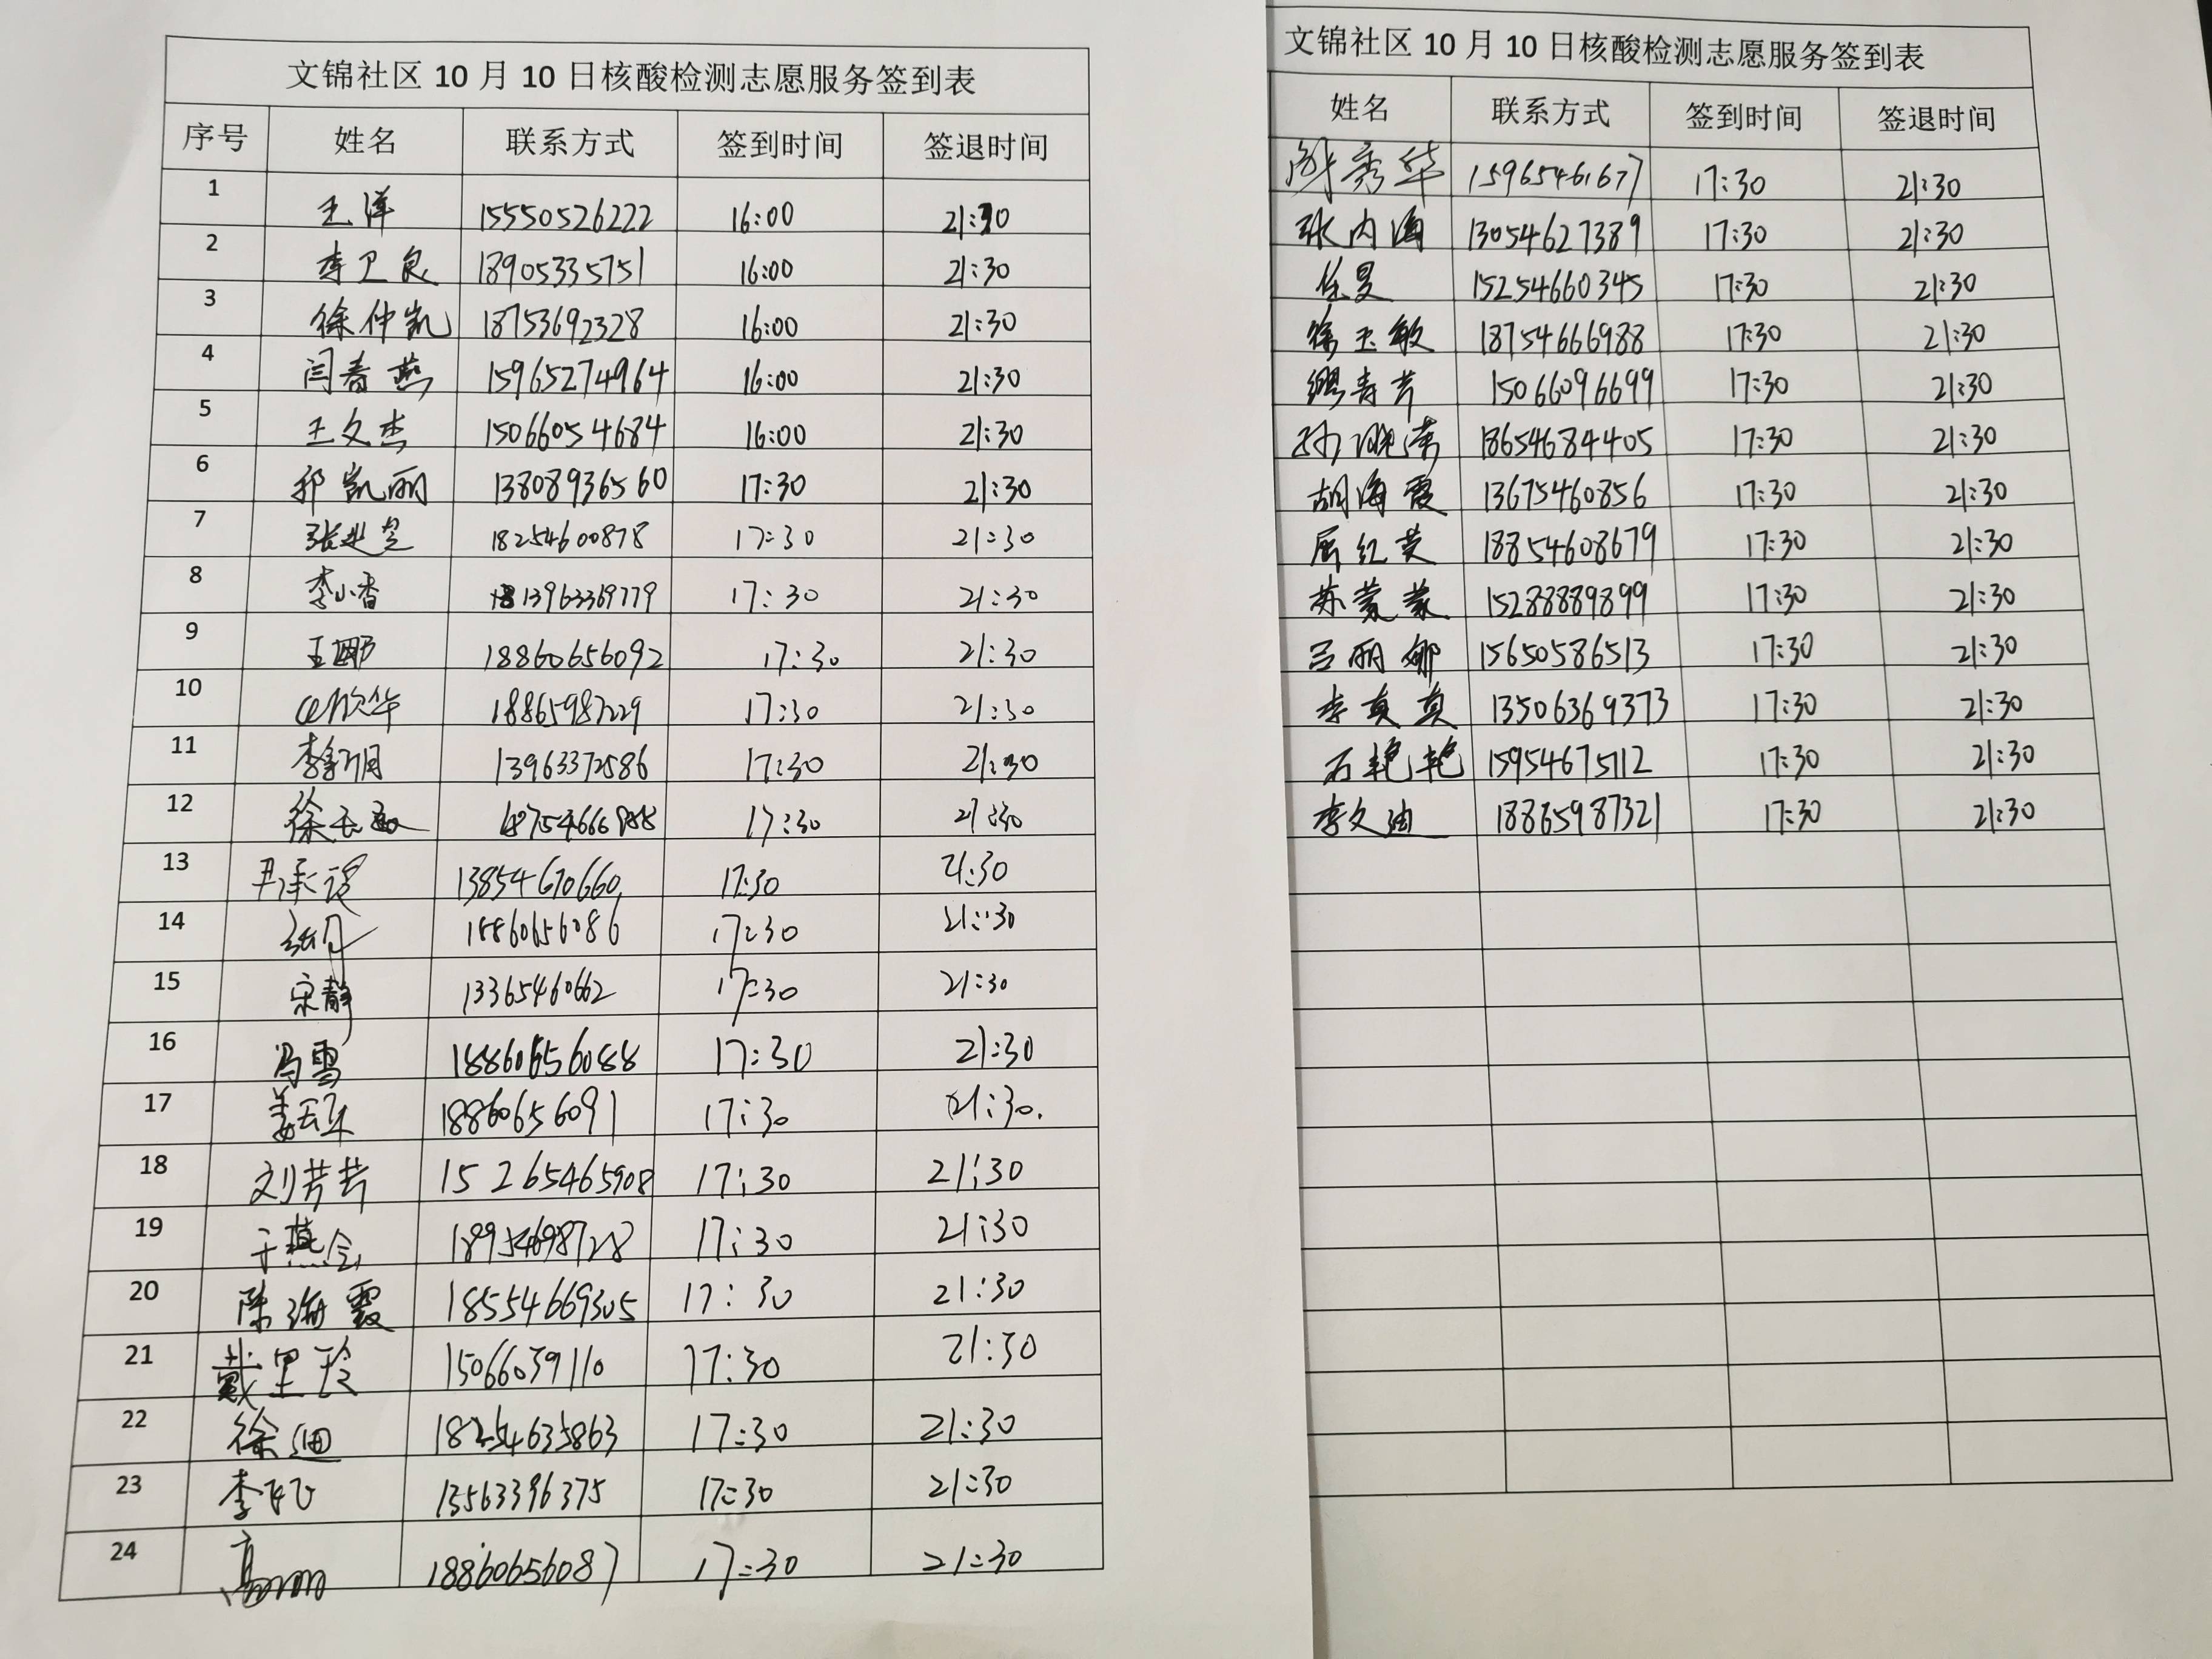 文锦社区10月10日核酸检测志愿服务签到表
序号 姓名 联系方式 签到时间 签退时间
1 王洋 15550526222 16:00 21:30
2 李卫良 18905335751 16:00 21:30
3 徐仲凯 18753692328 16:00 21:30
4 闫春燕 15965274964 16:00 21:30
5 王文杰 15066054684 16:00 21:30
6 郭凯丽 13808936560 17:30 21:30
7 18254600878 17:30 21:30
8 李小香 13963369779 17:30 21:30
9 王娜 18860656092 17:30 21:30
10 18865987229 17:30 21:30
11 13963372586 17:30 21:30
12 徐玉敏 18754666988 17:30 21:30
13 13854670660 17:30 21:30
14 18860656086 17:30 21:30
15 宋静 13365460662 17:30 21:30
16 冯雪 18860656088 17:30 21:30
17 18860656091 17:30 21:30
18 刘芳芳 15265465908 17:30 21:30
19 于燕会 18954698728 17:30 21:30
20 陈海霞 18554669305 17:30 21:30
21 戴里玲 15066039110 17:30 21:30
22 徐迪 18254635863 17:30 21:30
23 李 13563396375 17:30 21:30
24 高 18860656087 17:30 21:30
文锦社区10月10日核酸检测志愿服务签到表
姓名 联系方式 签到时间 签退时间
秀华 15965461677 17:30 21:30
张内海 13054627389 17:30 21:30
任昊 15254660345 17:30 21:30
徐玉敏 18754666988 17:30 21:30
15066096699 17:30 21:30
孙晓 18654684405 17:30 21:30
胡海霞 13675460856 17:30 21:30
屈红英 18854608679 17:30 21:30
苏蒙蒙 15288889899 17:30 21:30
吕丽娜 15650586513 17:30 21:30
李真真 13506369373 17:30 21:30
石艳艳 15954675112 17:30 21:30
李文迪 18865987321 17:30 21:30